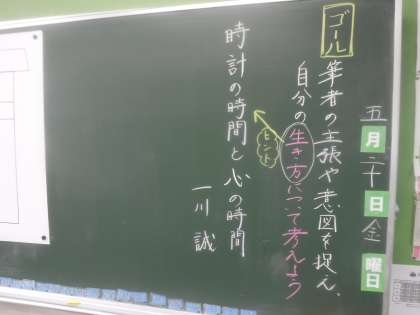 五月二十日金曜日
ゴール
筆者の主張や意図を捉え、
自分の生き方について考えよう
ヒント
時計の時間と心の時間
一川 誠